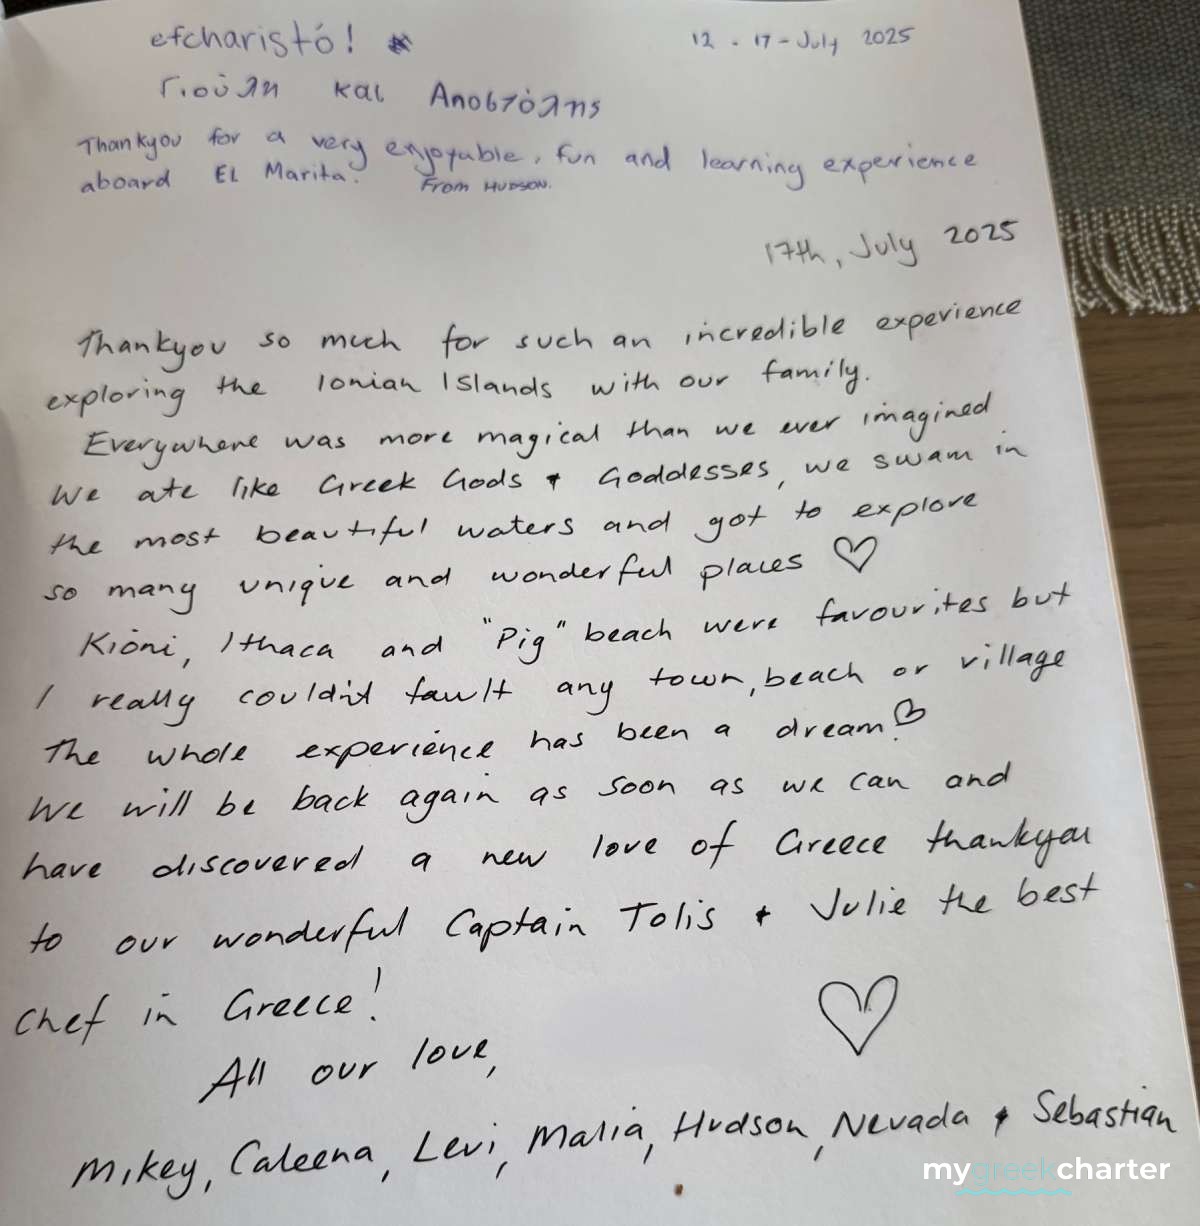 efcharistó!
12 - 17 - July 2025
Γιούλη και Αποστόλης
Thankyou for a very enjoyable, fun and learning experience
aboard EL Marita. From HUDSON.
17th, July 2025
Thankyou so much for such an incredible experience
exploring the Ionian Islands with our family.
Everywhere was more magical than we ever imagined
We ate like Greek Gods & Goddesses, we swam in
the most beautiful waters and got to explore
so many unique and wonderful places ♡
Kioni, Ithaca and "Pig" beach were favourites but
I really couldn't fault any town, beach or village
The whole experience has been a dream! ♡
We will be back again as soon as we can and
have discovered a new love of Greece thankyou
to our wonderful Captain Tolis & Julie the best
chef in Greece!
All our love, ♡
Mikey, Caleena, Levi, Malia, Hudson, Nevada & Sebastian
mygreekcharter